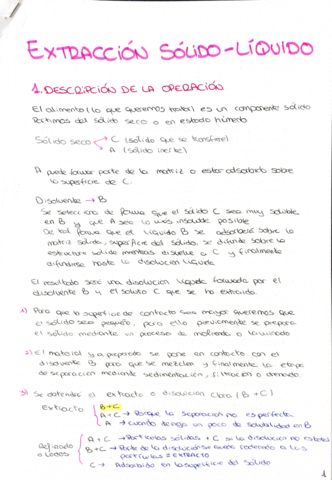 EXTRACCIÓN SÓLIDO-LÍQUIDO
1. DESCRIPCIÓN DE LA OPERACIÓN
El alimento (lo que queremos tratar) es un componente sólido
Partimos del sólido seco o en estado húmedo
Sólido seco → C (sólido que se transfiere)
→ A (sólido inerte)
A puede formar parte de la matriz o estar adsorbido sobre
la superficie de C.
Disolvente → B
Se selecciona de forma que el sólido C sea muy soluble
en B y que A sea lo más insoluble posible
De tal forma que el líquido B se adsorberá sobre la
matriz sólida, superficie del sólido, se difunde sobre la
estructura sólida mientras disuelve a C y finalmente
difundirse hasta la disolución líquida
El resultado será una disolución líquida formada por el
disolvente B y el soluto C que se ha extraído.
1) Para que la superficie de contacto sea mayor queremos que
el sólido sea pequeño, para ello previamente se prepara
el sólido mediante un proceso de molienda o laminado
2) El material ya preparado se pone en contacto con el
disolvente B para que se mezclen y finalmente la etapa
de separación mediante sedimentación, filtración o drenado
3) Se obtendrá el extracto o disolución clara (B+C)
Extracto B+C
A+C → Porque la separación no es perfecta
A → cuando tenga un poco de solubilidad en B
Refinado o Lodos
A+C → Partículas sólidas + C si la disolución no es total
B+C → Parte de la disolución que puede quedar a las
partículas ≠ EXTRACTO
C → Adsorbido en la superficie del sólido
1